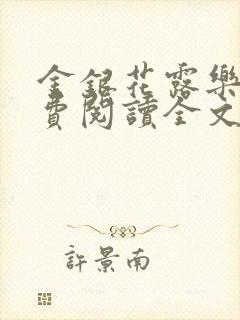 金銀花露樂
費閱讀全文
許景南